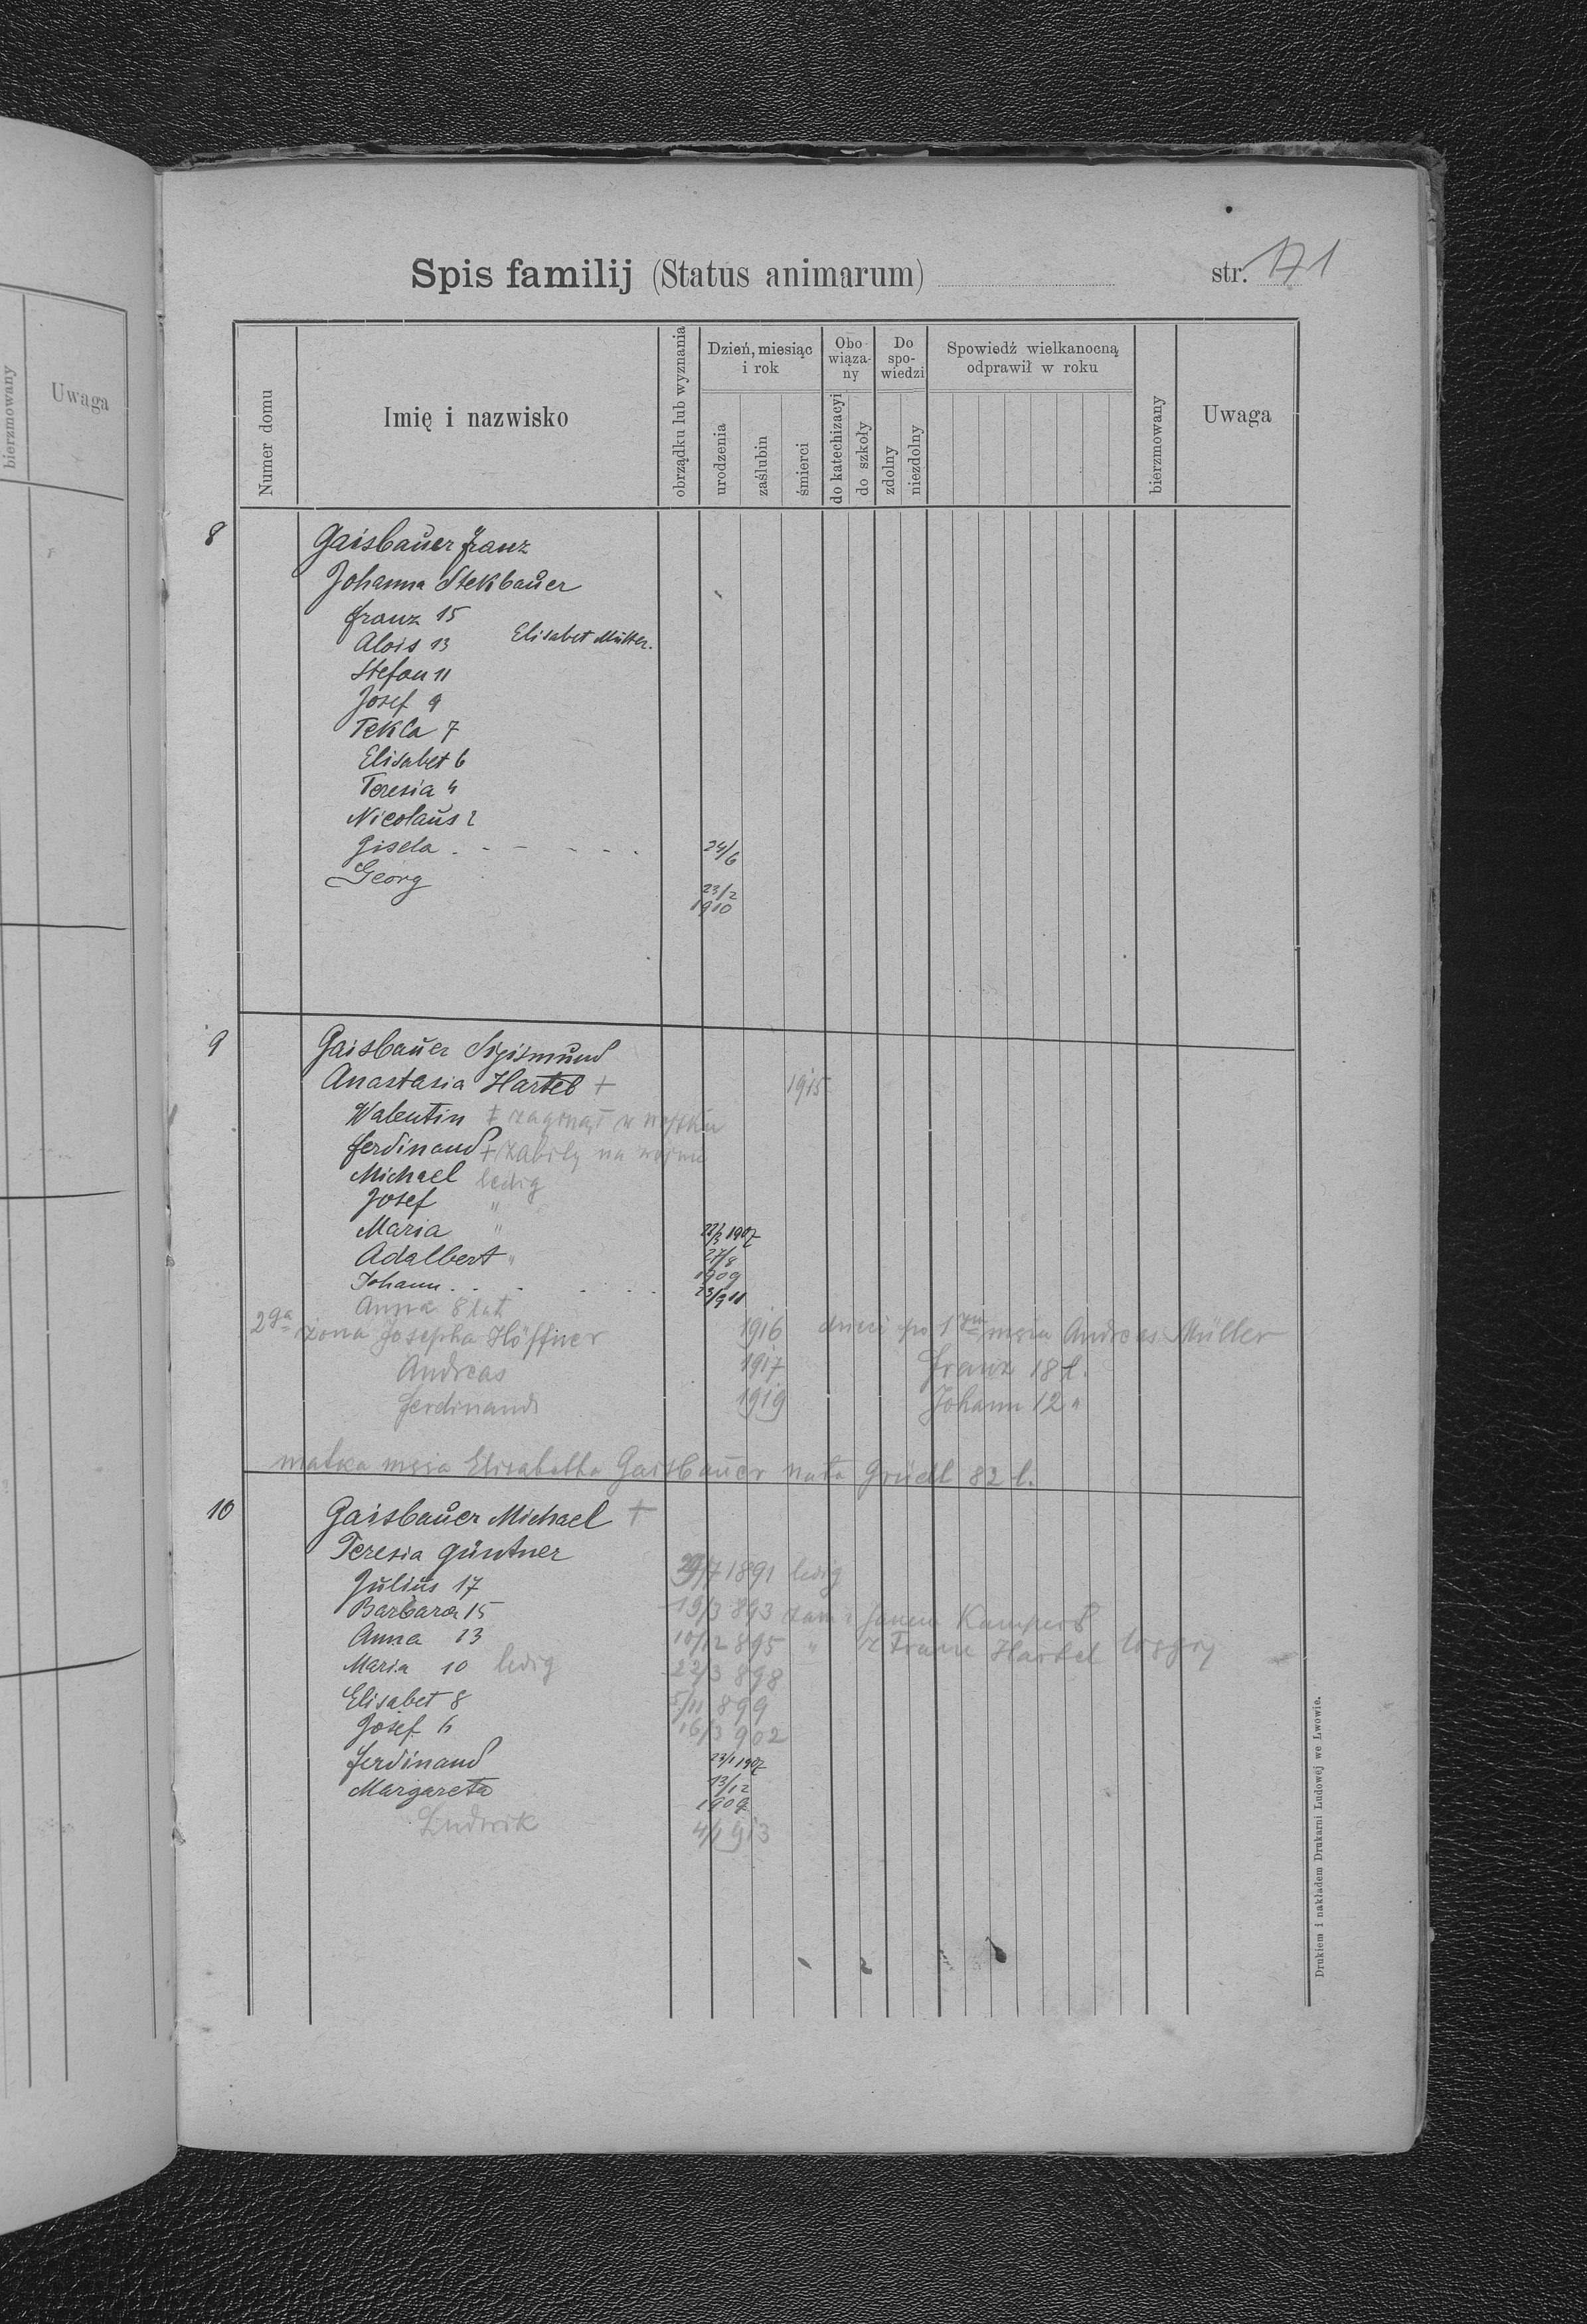 bierzmowany
Uwaga
Spis familij (Status animarum)
str. 171
Numer domu
Imię i nazwisko
obrządku lub wyznania
Dzień, miesiąc i rok
urodzenia
zaślubin
śmierci
Obowiązany
do katechizacyi
do szkoły
Do spowiedzi
zdolny
niezdolny
Spowiedź wielkanocną odprawił w roku
bierzmowany
Uwaga
8 Gaisbauer Franz
Johanna Stekbauer
Franz 15
Alois 13 Elisabet Müller.
Stefan 11
Josef 9
Tekla 7
Elisabet 6
Teresia 4
Nicolaus 2
Gisela . - - - - - . 24/6
Georg 23/2 1910
9 Gaisbauer Sigismund
Anastasia Hartel + 1915
Walentin + zaginął w wojsku
Ferdinand + zabity na wojnie
Michael ledig
Josef "
Maria " 1907
Adalbert " 27/8 1909
Johann . . . . . 23/911
Anna 8 lat
2ga żona Josepha Höffner 1916 dzieci po 1ym mężu Andreas Müller
Andreas 1917 Franz 18 l.
Ferdinand 1919 Johann 12 "
matka męża Elisabetha Gaisbauer nata Gründl 82 l.
10 Gaisbauer Michael +
Teresia Güntner
Julius 17 29/7 1891 ledig
Barbara 15 19/3 893 zam z Janem
Anna 13 10/12 895 " z Franz Hartel
Maria 10 ledig 22/3 898
Elisabet 8 5/11 899
Josef 6 16/3 902
Ferdinand 23/1 1907
Margareta 13/12 1909
Ludwik 4/1 913
Drukiem i nakładem Drukarni Ludowej we Lwowie.